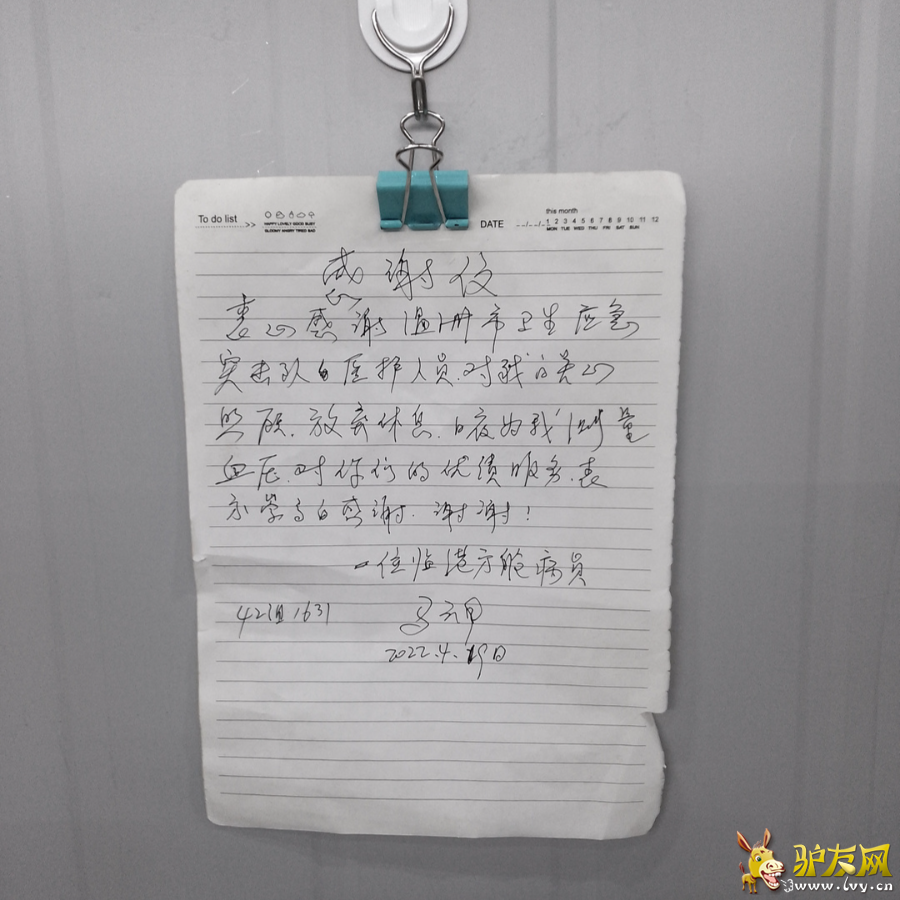 To do list >>
HAPPY LOVELY GOOD BUSY
GLOOMY ANGRY TIRED SAD
DATE --/--/--
this month
1 2 3 4 5 6 7 8 9 10 11 12
MON TUE WED THU FRI SAT SUN
感谢信
衷心感谢温州市卫生应急
突击队的医护人员.对我的关心
照顾.放弃休息.日夜为我测量
血压.对你们的优质服务.表
示崇高的感谢.谢谢!
一位临港方舱病员
42组1631
2022.4.19日
驴友网
www.lvy.cn